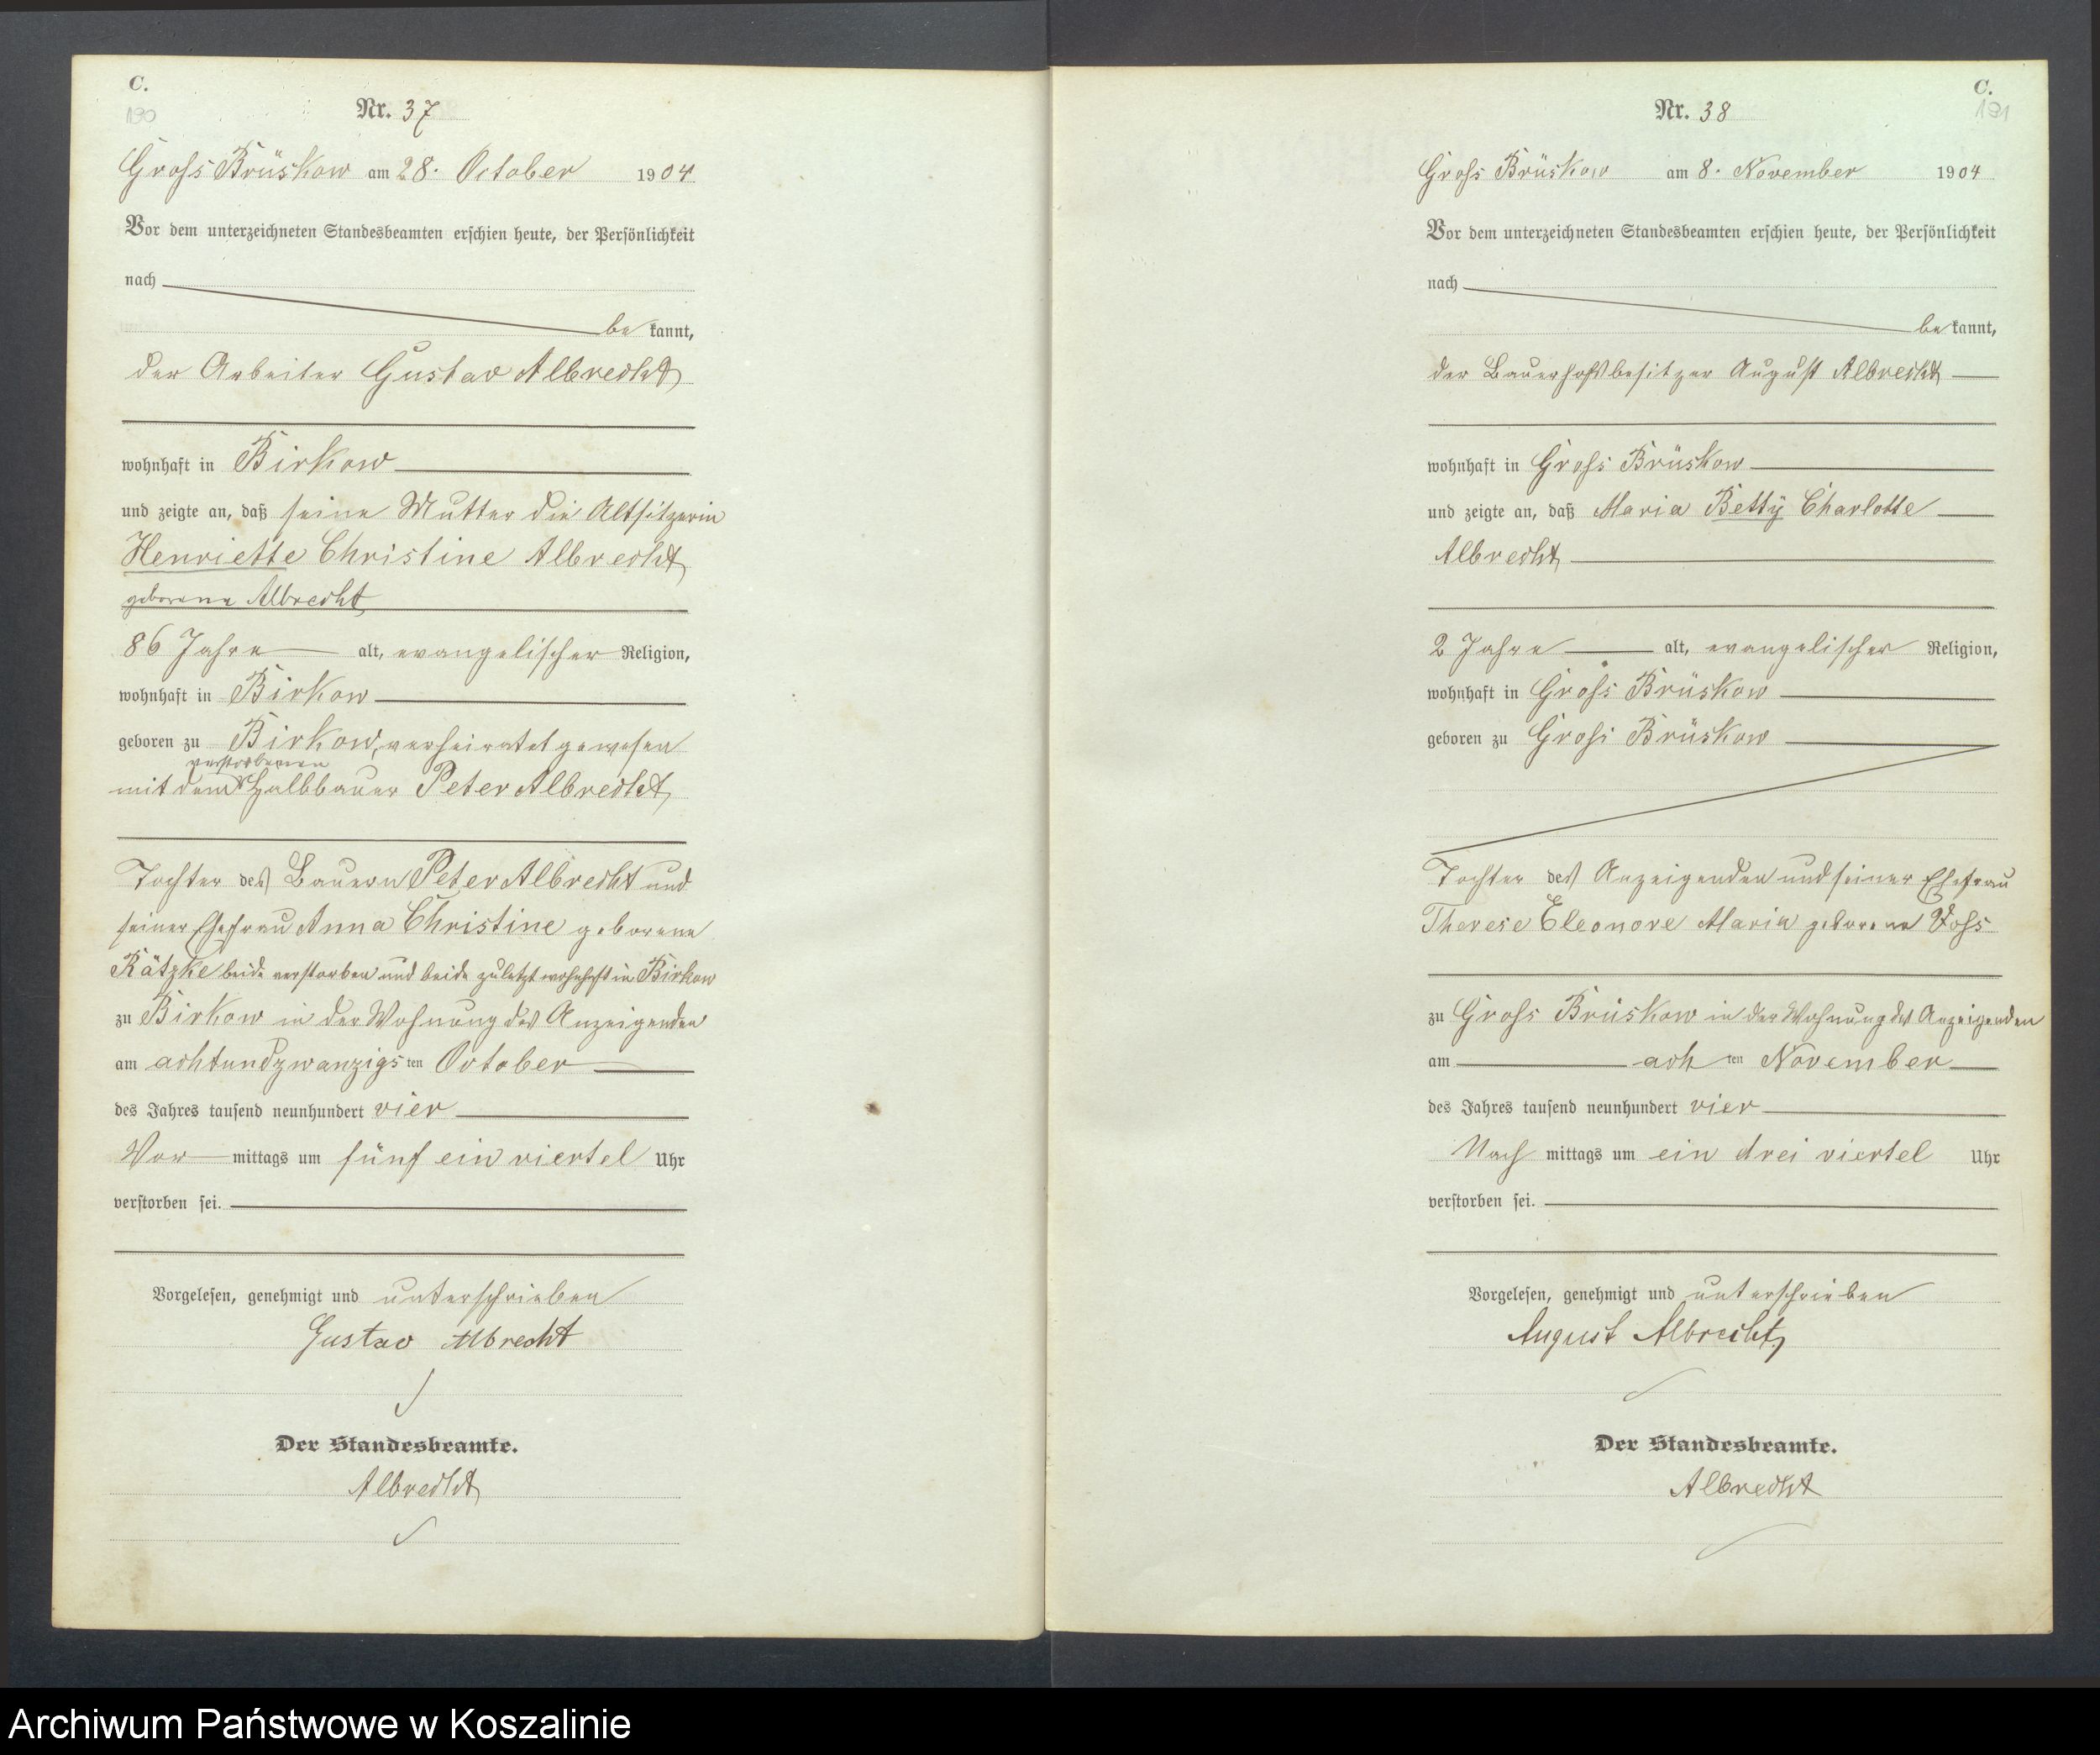 C.
190
Nr. 37
Gross Brüskow am 28. October 1904
Vor dem unterzeichneten Standesbeamten erschien heute, der Persönlichkeit
nach
be kannt,
der Arbeiter Gustav Albrecht
wohnhaft in Birkow
und zeigte an, daß seine Mutter die Altsitzerin
Henriette Christine Albrecht
geborene Albrecht
86 Jahre alt, evangelischer Religion,
wohnhaft in Birkow
geboren zu Birkow, verheiratet gewesen
verstorbenen
mit dem Halbbauer Peter Albrecht
Tochter des Bauern Peter Albrecht und
seiner Ehefrau Anna Christine geborene
Rätzke beide verstorben und beide zuletzt wohnhaft in Birkow
zu Birkow in der Wohnung des Anzeigenden
am achtundzwanzigs ten October
des Jahres tausend neunhundert vier
Vor mittags um fünf ein viertel Uhr
verstorben sei.
Vorgelesen, genehmigt und unterschrieben
Gustav Albrecht
Der Standesbeamte.
Albrecht
C.
191
Nr. 38
Gross Brüskow am 8. November 1904
Vor dem unterzeichneten Standesbeamten erschien heute, der Persönlichkeit
nach
be kannt,
der Bauerhofsbesitzer August Albrecht
wohnhaft in Gross Brüskow
und zeigte an, daß Maria Betty Charlotte
Albrecht
2 Jahre alt, evangelischer Religion,
wohnhaft in Gross Brüskow
geboren zu Gross Brüskow
Tochter des Anzeigenden und seiner Ehefrau
Therese Eleonore Maria geborene Voss
zu Gross Brüskow in der Wohnung des Anzeigenden
am ach ten November
des Jahres tausend neunhundert vier
Nach mittags um ein drei viertel Uhr
verstorben sei.
Vorgelesen, genehmigt und unterschrieben
August Albrecht
Der Standesbeamte.
Albrecht
Archiwum Państwowe w Koszalinie